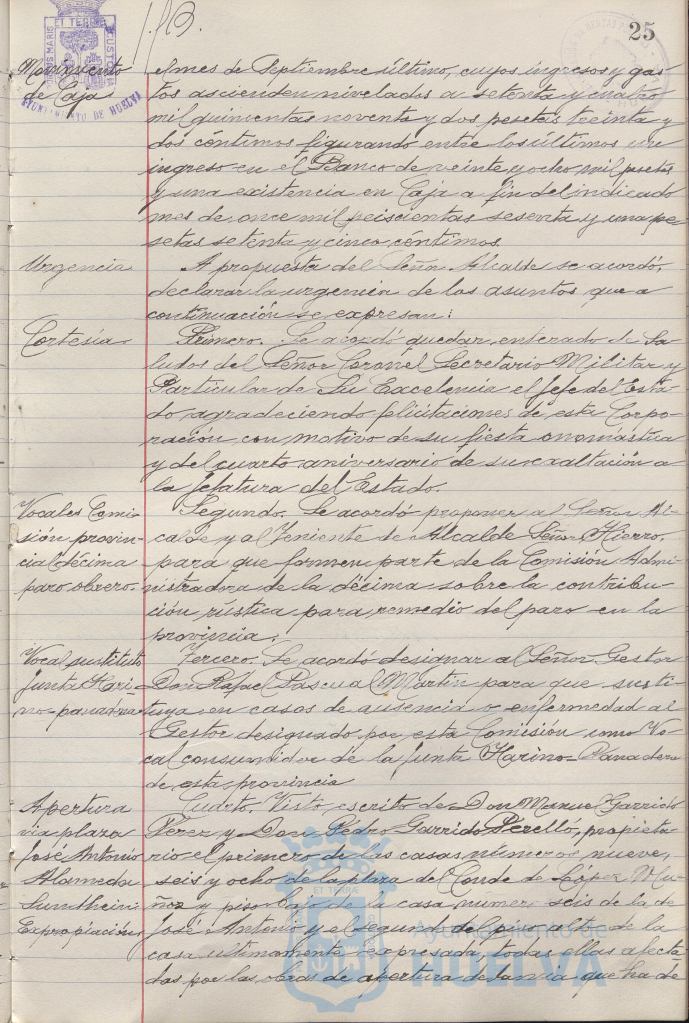 25
Movimiento
de Caja
el mes de Septiembre último, cuyos ingresos y gas-
tos ascienden nivelados a setenta y cuatro
mil quinientas noventa y dos pesetas treinta y
dos céntimos figurando entre los últimos un
ingreso en el Banco de veinte y ocho mil pesetas
y una existencia en Caja a fin del indicado
mes de once mil seiscientas sesenta y una pe-
setas setenta y cinco céntimos.
Urgencia
A propuesta del Señor Alcalde se acordó,
declarar la urgencia de los asuntos que a
continuación se expresan:
Cortesía
Primero. Se acordó quedar enterado de Sa-
ludos del Señor Coronel Secretario Militar y
Particular de Su Excelencia el Jefe del Esta-
do agradeciendo felicitaciones de esta Corpo-
ración, con motivo de su fiesta onomástica
y del cuarto aniversario de su exaltación a
la Jefatura del Estado.
Vocales Comi-
sión provin-
cial décima
paro obrero.
Segundo. Se acordó proponer al Señor Al-
calde y al Teniente de Alcalde Señor Hierro,
para que formen parte de la Comisión Admi-
nistradora de la décima sobre la contribu-
ción rústica para remedio del paro en la
provincia.
Vocal sustituto
Junta Hari-
no-panadera
Tercero. Se acordó designar al Señor Gestor
Don Rafael Pascual Martín para que susti-
tuya en casos de ausencia o enfermedad al
Gestor designado por esta Comisión como Vo-
cal consumidor de la Junta Harino-Panadera
de esta provincia
Apertura
via plaza
José Antonio
Alameda
Sundheim
Expropiación
Cuarto. Visto escrito de Don Manuel Garrido
Perez y Don Pedro Garrido Perelló, propieta-
rio el primero de las casas números nueve,
seis y ocho de la plaza del Conde de López Mu-
ñoz y piso bajo de la casa número seis de la de
José Antonio y el segundo del piso alto de la
casa ultimamente expresada, todas ellas afecta-
das por las obras de apertura de la via que ha de
AYUNTAMIENTO DE HUELVA
Ayuntamiento de
HUELVA